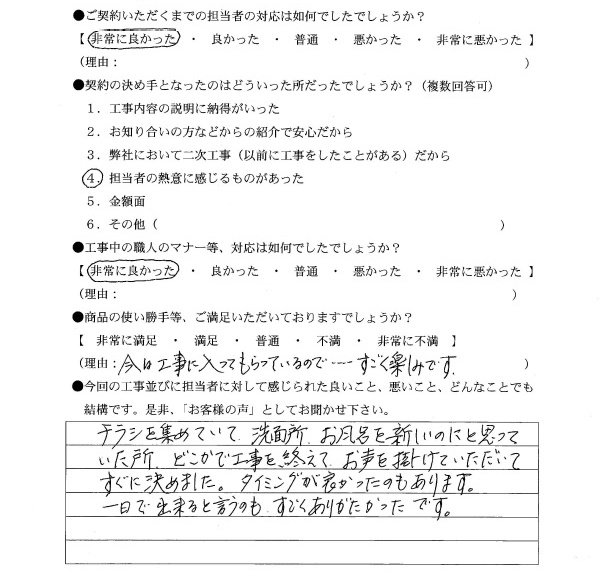 ●ご契約いただくまでの担当者の対応は如何でしたでしょうか？
【 非常に良かった ・ 良かった ・ 普通 ・ 悪かった ・ 非常に悪かった 】
（理由： ）
●契約の決め手となったのはどういった所だったでしょうか？（複数回答可）
１．工事内容の説明に納得がいった
２．お知り合いの方などからの紹介で安心だから
３．弊社において二次工事（以前に工事をしたことがある）だから
４．担当者の熱意に感じるものがあった
５．金額面
６．その他（ ）
●工事中の職人のマナー等、対応は如何でしたでしょうか？
【 非常に良かった ・ 良かった ・ 普通 ・ 悪かった ・ 非常に悪かった 】
（理由： ）
●商品の使い勝手等、ご満足いただいておりますでしょうか？
【 非常に満足 ・ 満足 ・ 普通 ・ 不満 ・ 非常に不満 】
（理由：今日工事に入ってもらっているので…… すごく楽しみです。 ）
●今回の工事並びに担当者に対して感じられた良いこと、悪いこと、どんなことでも
結構です。是非、「お客様の声」としてお聞かせ下さい。
チラシを集めていて、洗面所、お風呂を新しいのにと思って
いた所、どこかで工事を終えて、お声を掛けていただいて
すぐに決めました。タイミングが良かったのもあります。
一日で出来ると言うのも、すごくありがたかったです。